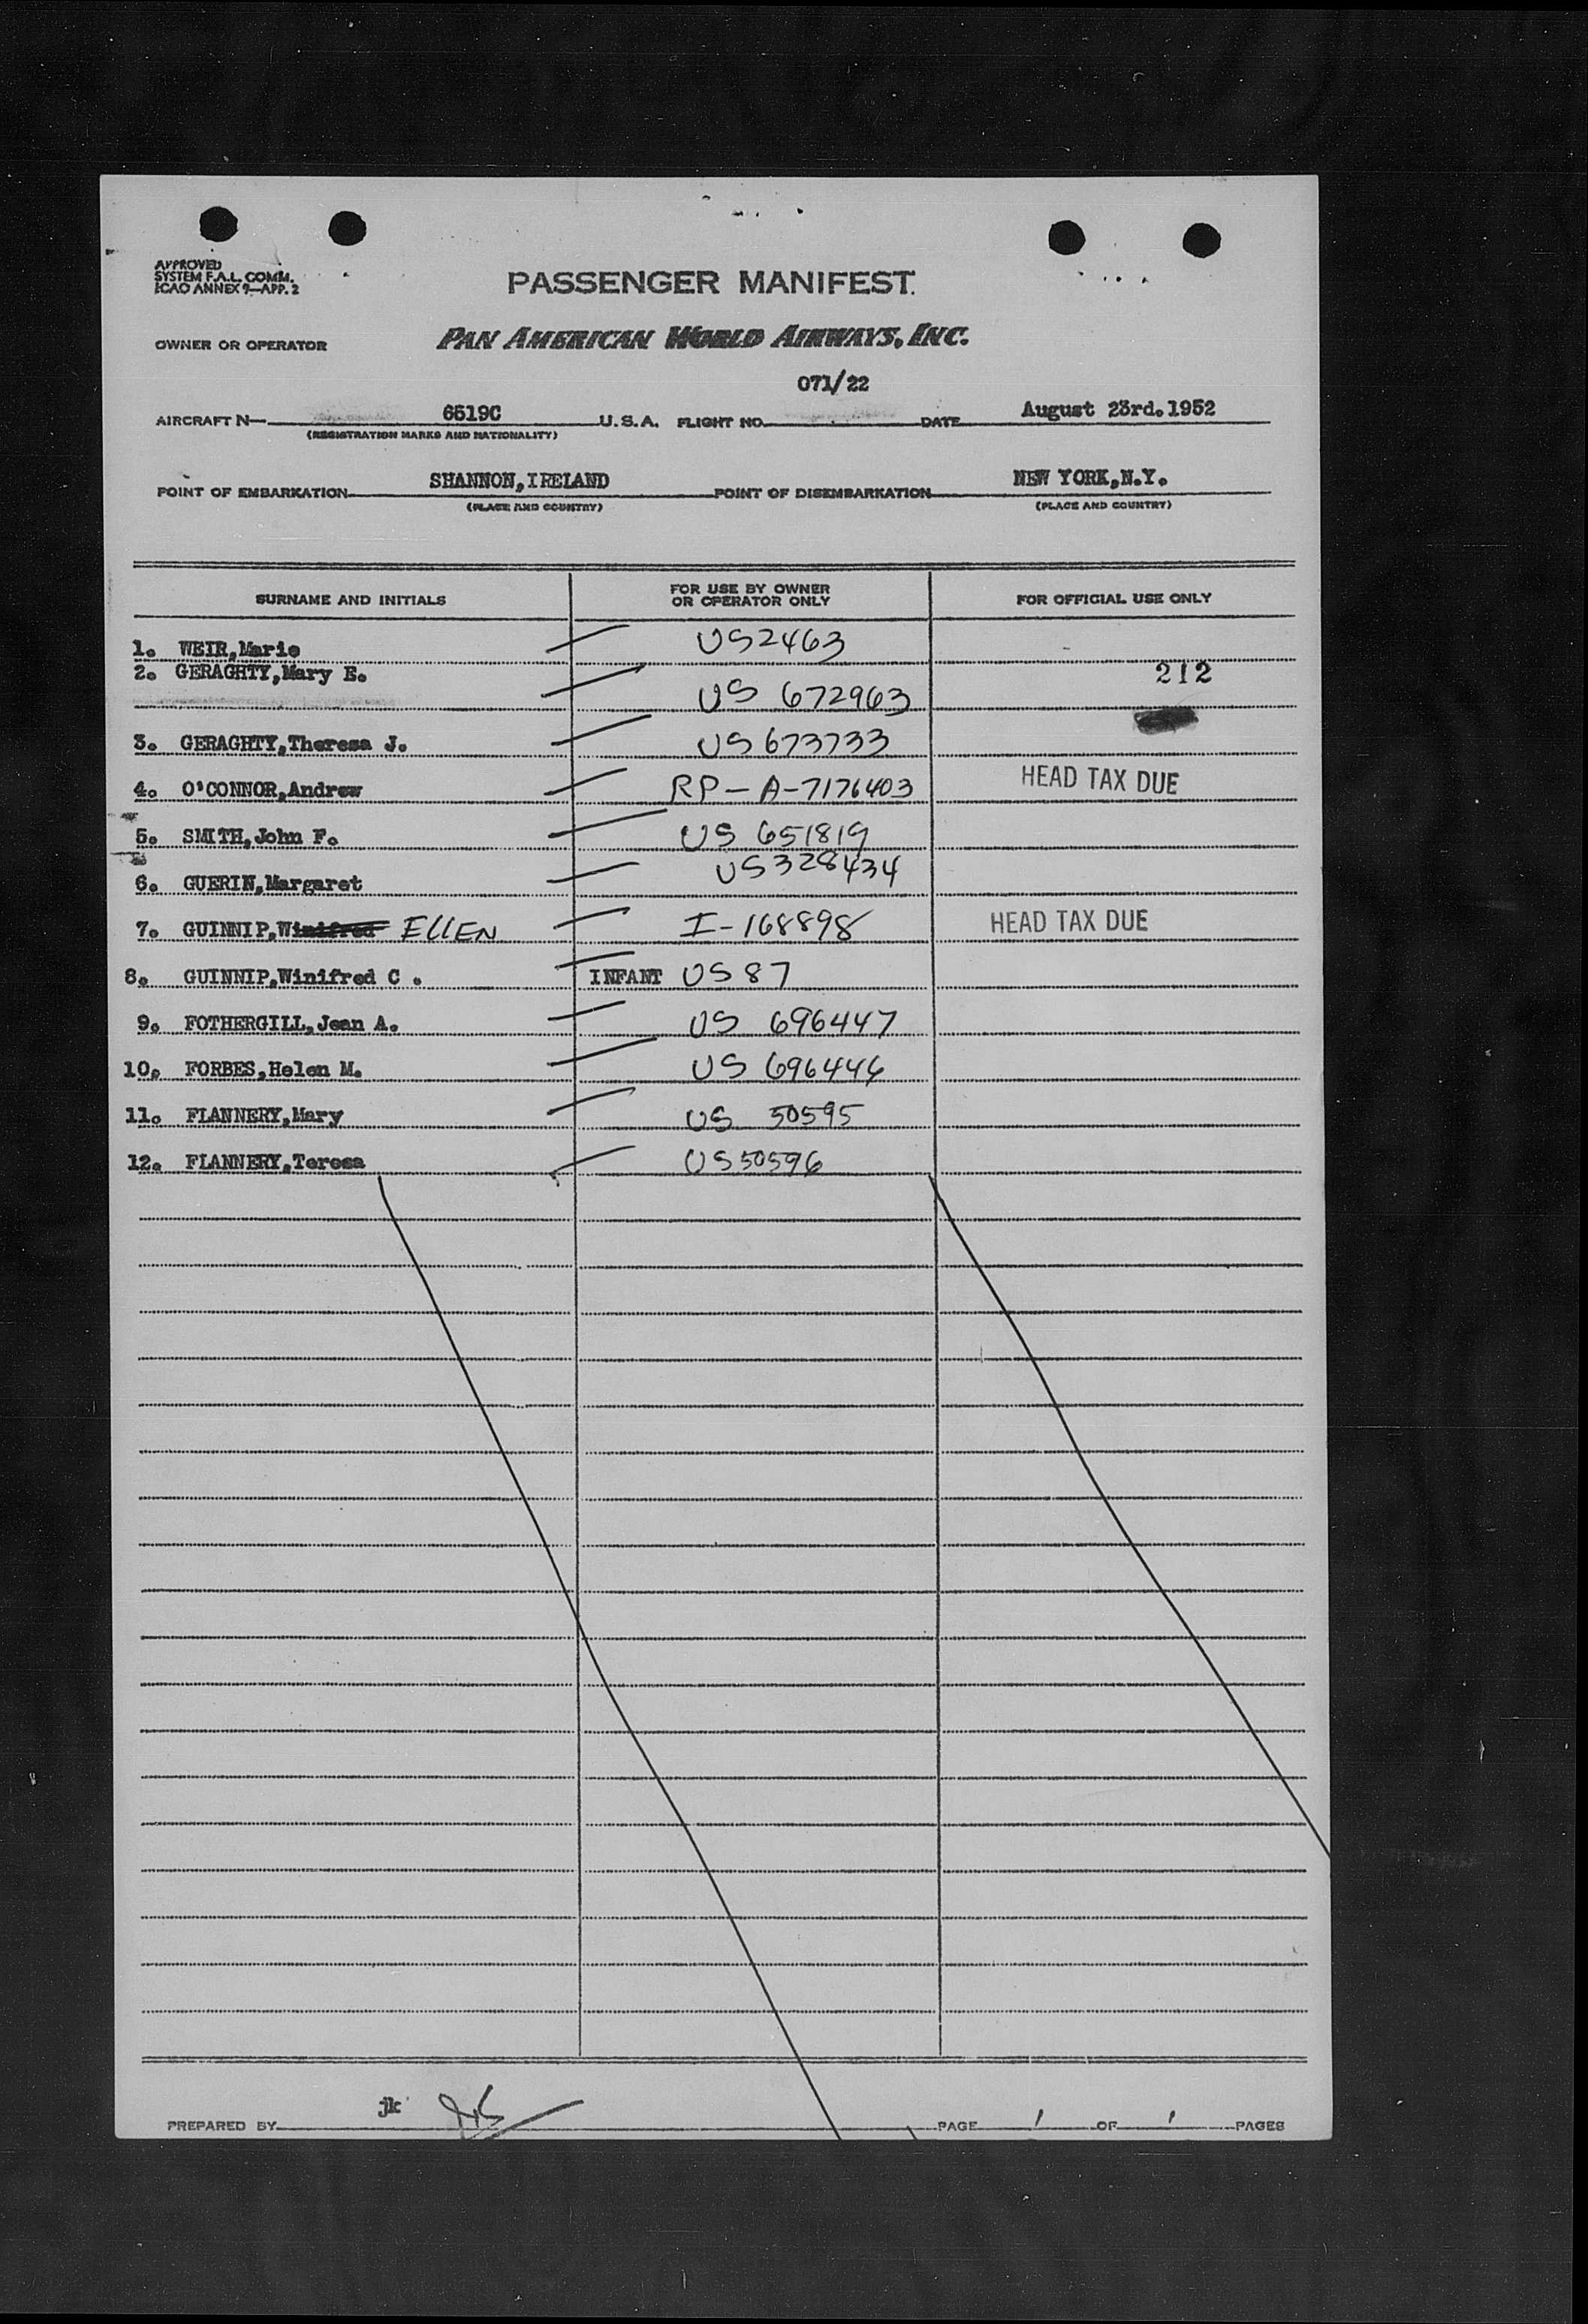 APPROVED
SYSTEM F.A.L. COMM.
ICAO ANNEX 9—APP. 2
PASSENGER MANIFEST
OWNER OR OPERATOR PAN AMERICAN WORLD AIRWAYS, INC.
071/22
AIRCRAFT N— 6519C U.S.A. FLIGHT NO. DATE August 23rd.1952
(REGISTRATION MARKS AND NATIONALITY)
POINT OF EMBARKATION SHANNON,IRELAND POINT OF DISEMBARKATION NEW YORK,N.Y.
(PLACE AND COUNTRY) (PLACE AND COUNTRY)
SURNAME AND INITIALS FOR USE BY OWNER OR OPERATOR ONLY FOR OFFICIAL USE ONLY
1. WEIR,Marie US2463
2. GERAGHTY,Mary E. US 672963 212
3. GERAGHTY,Theresa J. US673733
4. O'CONNOR,Andrew RP-A-7176403 HEAD TAX DUE
5. SMITH,John F. US 651819
6. GUERIN,Margaret US328434
7. GUINNIP,Winifred ELLEN I-168898 HEAD TAX DUE
8. GUINNIP,Winifred C . INFANT US 87
9. FOTHERGILL,Jean A. US 696447
10. FORBES,Helen M. US 696446
11. FLANNERY,Mary US 50595
12. FLANNERY,Teresa US50596
PREPARED BY jk PAGE 1 OF 1 PAGES